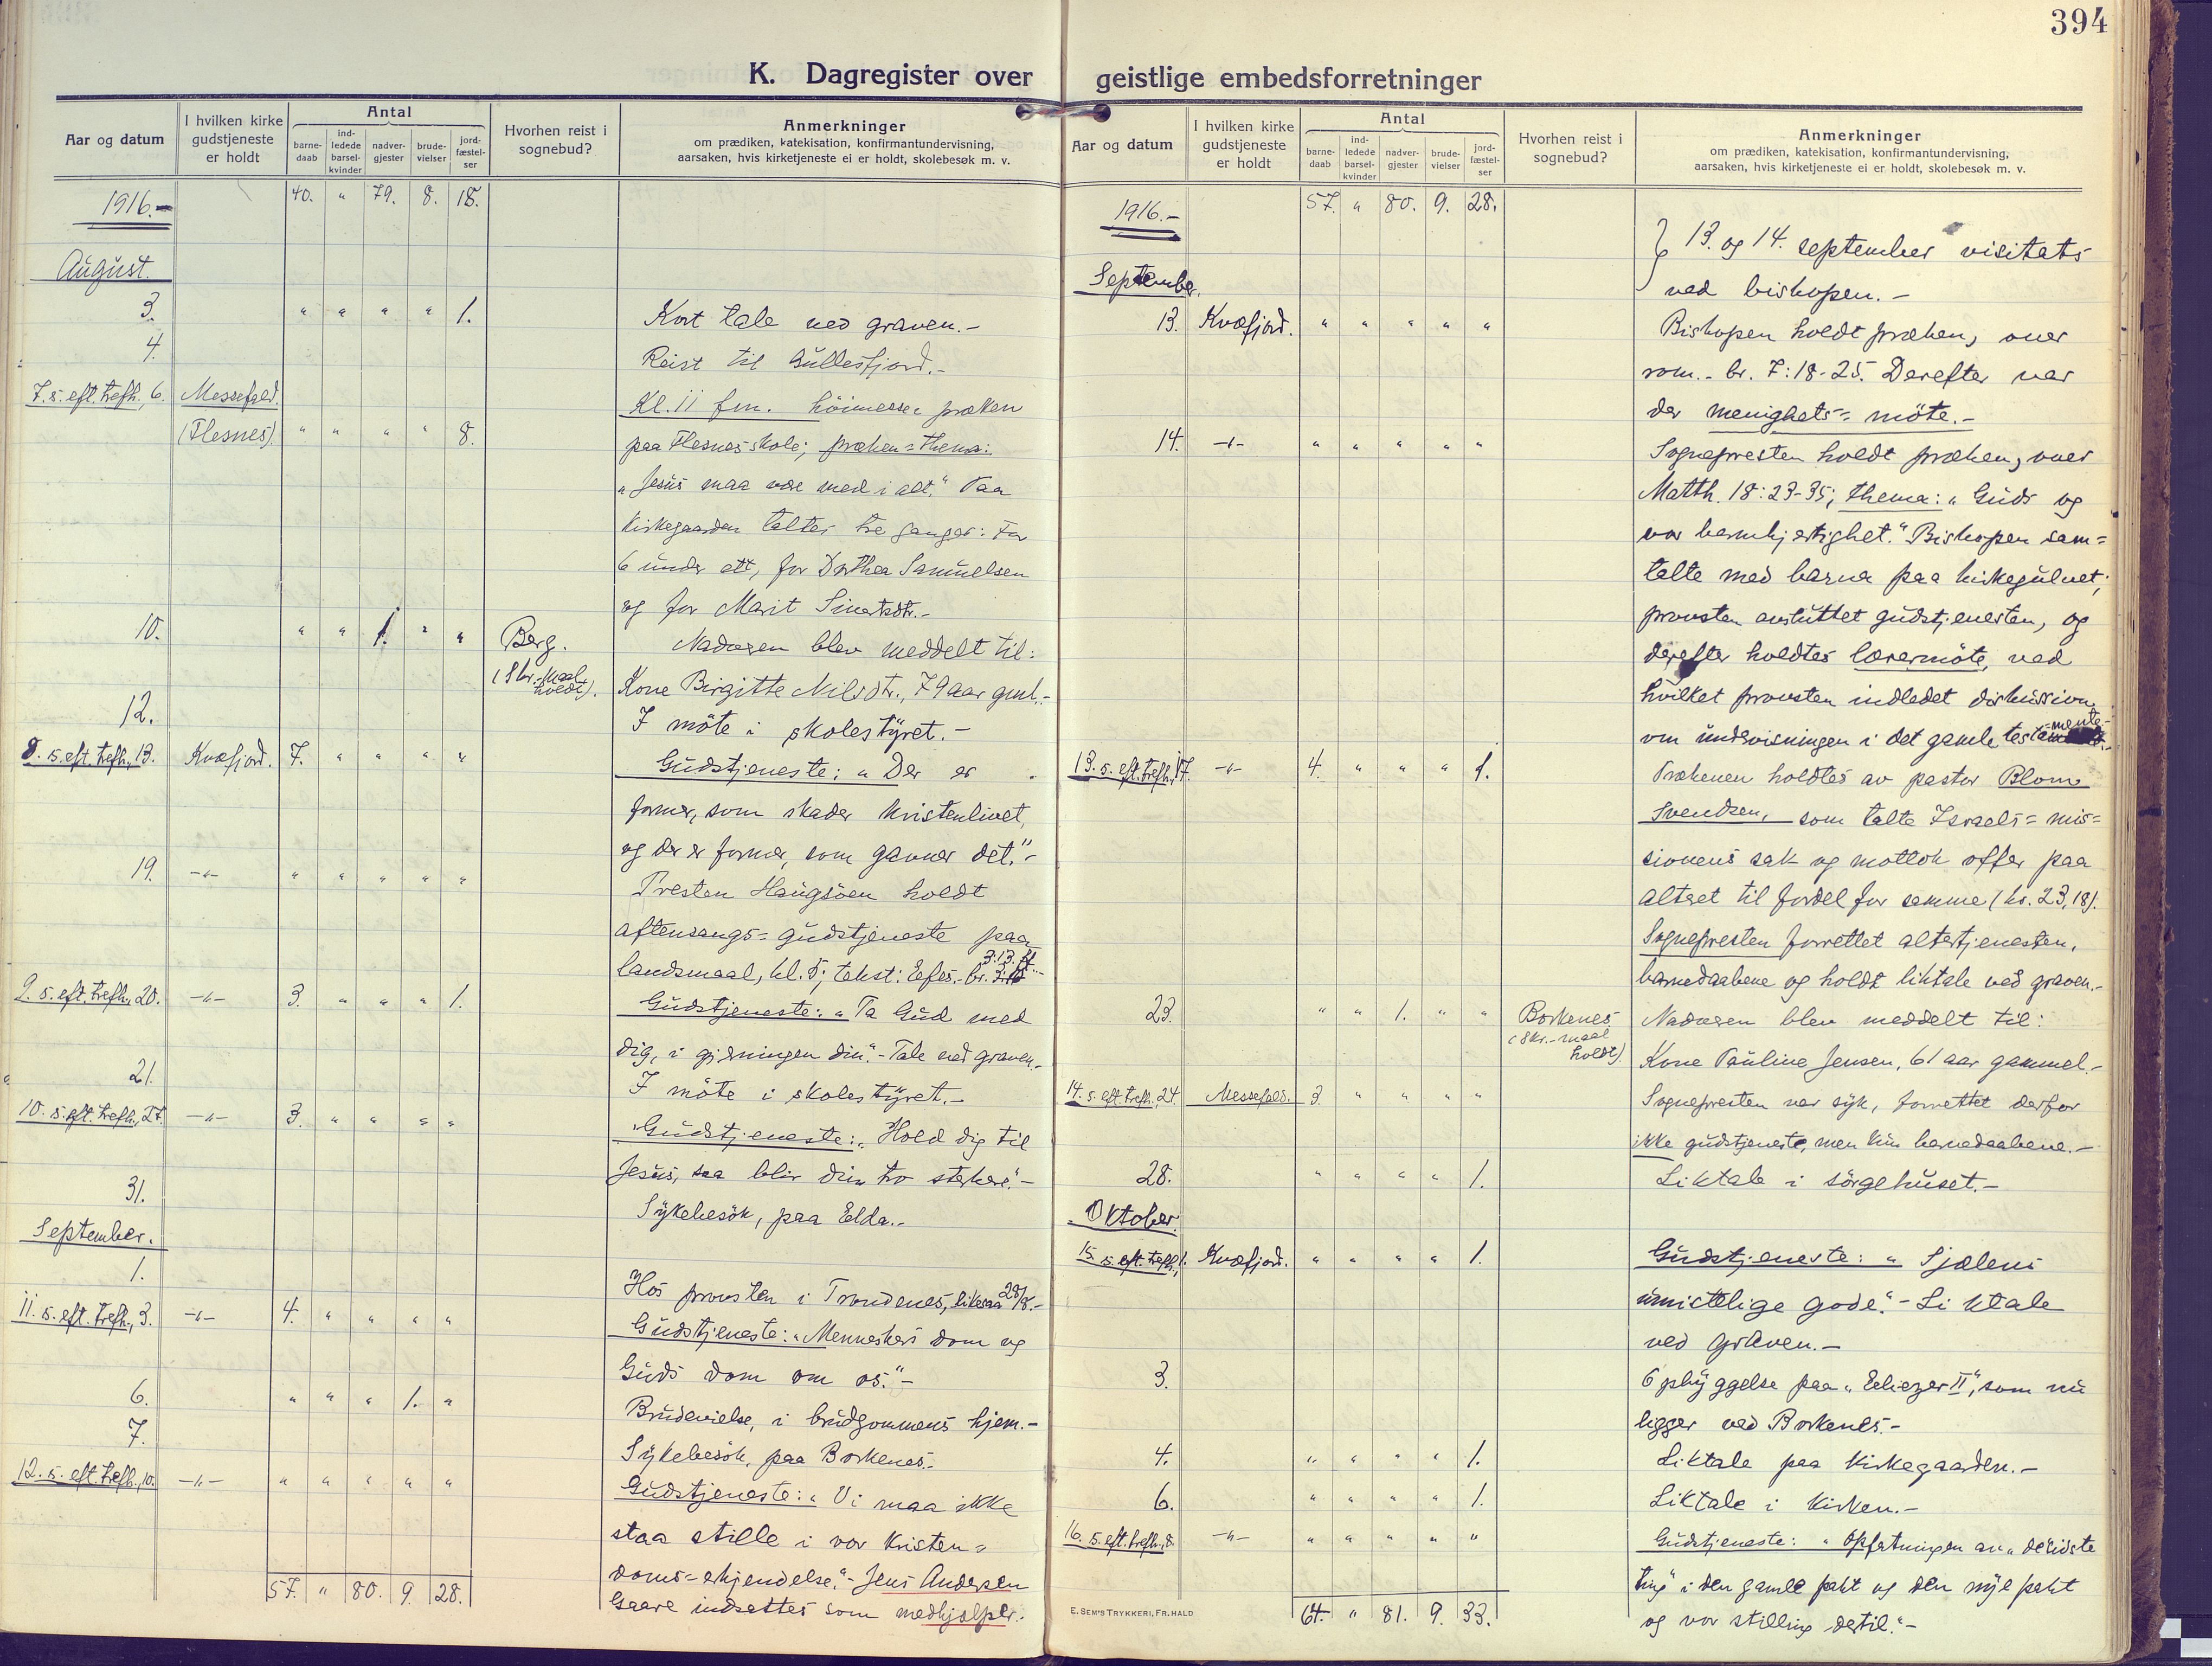 394
K. Dagregister over geistlige embedsforretninger
Aar og datum
I hvilken kirke gudstjeneste er holdt
Antal
barne-daab
ind-ledede barsel-kvinder
nadver-gjester
brude-vielser
jord-fæstel-ser
Hvorhen reist i sognebud?
Anmerkninger
om prædiken, katekisation, konfirmantundervisning,
aarsaken, hvis kirketjeneste ei er holdt, skolebesøk m. v.
1916.- 40. " 79. 8. 18.
August.
3. " " " " 1. Kort tale ved graven.-
4. Reist til Gullesfjord.-
7. s. eft. trefh., 6. Messefeld. Kl. 11 fm. höimesse præken
(Flesnes) " " " " 8. paa Flesnes skole; præken=thema:
"Jesus maa være med i alt." Paa
kirkegaarden taltes tre ganger: For
6 under ett, for Dorthea Samuelsen
og for Marit Sivertsdtr.-
10. " " 1. " " Berg. Nadveren blev meddelt til:
(Skr.-maal holdt). Kone Birgitte Nilsdtr., 79 aar gml.-
12. I möte i skolestyret.-
8. s. eft. trefh., 13. Kvæfjord. 7. " " " " Gudstjeneste: "Der er
former, som skader kristenlivet,
og der er former, som gavner det."-
19. -"- " " " " " Presten Haugsöen holdt
aftensangs=gudstjeneste paa
landsmaal, kl. 5; tekst: Efes.-br. 3:13 ff.-
9. s. eft. trefh., 20. -"- 3. " " " 1. Gudstjeneste: "Ta Gud med
dig, i gjerningen din."- Tale ved graven.-
21. I möte i skolestyret.-
10. s. eft. trefh., 27. -"- 3. " " " " Gudstjeneste: "Hold dig til
Jesus, saa blir din tro sterkere."-
31. Sykebesök, paa Elda.-
September.
1. Hos prousten i Trondenes, likesaa 28/8.-
11. s. eft. trefh., 3. -"- 4. " " " " Gudstjeneste: "Menneskers dom og
Guds dom om os."-
6. " " " 1. " Brudevielse, i brudgommens hjem.-
7. Sykebesök, paa Borkenes.-
12. s. eft. trefh., 10. -"- " " " " " Gudstjeneste: "Vi maa ikke
staa stille i vor kristen=
doms=erkjendelse."- Jens Andersen
57. " 80. 9. 28. Gaare indsattes som medhjælper.
Aar og datum
I hvilken kirke gudstjeneste er holdt
Antal
barne-daab
ind-ledede barsel-kvinder
nadver-gjester
brude-vielser
jord-fæstel-ser
Hvorhen reist i sognebud?
Anmerkninger
om prædiken, katekisation, konfirmantundervisning,
aarsaken, hvis kirketjeneste ei er holdt, skolebesøk m. v.
1916.- 57. " 80. 9. 28.
13. og 14. september visitats
September. ved biskopen.-
13. Kvæfjord. " " " " " Biskopen holdt præken, over
rom.-br. 7:18-25. Derefter var
der menighets=möte.-
14. -"- " " " " " Sognepresten holdt præken, over
Matth. 18:23-35; thema: "Guds og
vor barmhjertighet." Biskopen sam=
talte med barna paa kirkegulvet;
prousten avsluttet gudstjenesten, og
derefter holdtes lærermöte, ved
hvilket prousten indledet diskussion
om undervisningen i det gamle testamente.-
13. s. eft. trefh., 17. -"- 4. " " " 1. Prækenen holdtes av pastor Blom
Svendsen, som talte Israels=mis=
sionens sak og mottok offer paa
alteret til fordel for samme (kr. 23,18).
Sognepresten forrettet altertjenesten,
barnedaabene og holdt liktale ved graven.-
23. " " 1. " " Borkenes Nadveren blev meddelt til:
(Skr.-maal holdt). Kone Pauline Jensen, 61 aar gammel.-
14. s. eft. trefh., 24. Messefeld. 3. " " " " Sognepresten var syk, forrettet derfor
ikke gudstjeneste, men kun barnedaabene.-
28. " " " " 1. Liktale i sörgehuset.-
Oktober.
15. s. eft. trefh., 1. Kvæfjord. " " " " 1. Gudstjeneste: "Sjælens
umistelige gode."- Liktale
ved graven.-
3. Opbyggelse paa "Ebenezer II", som nu
ligger ved Borkenes.-
4. " " " " 1. Liktale paa kirkegaarden.-
6. " " " " 1. Liktale i kirken.-
16. s. eft. trefh., 8. -"- " " " " " Gudstjeneste: "Opfatningen av "de sidste
ting" i den gamle pakt og den nye pakt
64. " 81. 9. 33. og vor stilling dertil."-
E. SEM'S TRYKKERI, FR.HALD